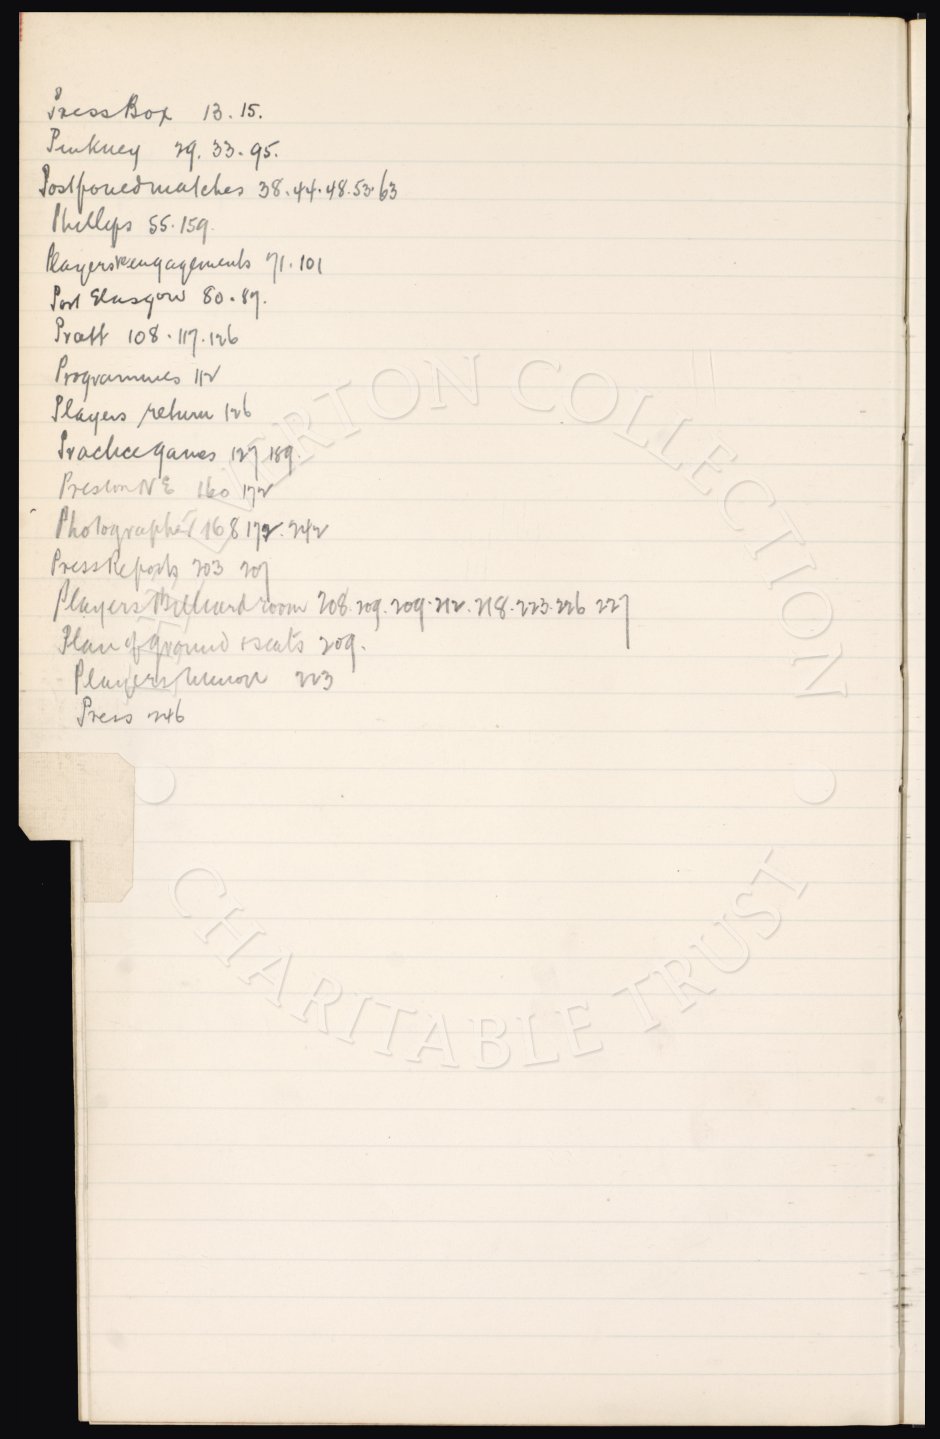 Press Box 13. 15.
Pinkney 29. 33. 95.
Postponed matches 38. 44. 48. 53. 63
Phillips 55. 159.
Players re engagements 71. 101
Port Glasgow 80. 87.
Pratt 108. 117. 126
Programmes 112
Players return 126
Practice games 127 189.
Preston N E 160 172
Photographer 168 172. 242
Press Reports 203 207
Players Billiard room 208. 209. 209. 212. 218. 223. 226 227
Plan of ground & seats 209.
Players Union 223
Press 246
EVERTON COLLECTION
CHARITABLE TRUST